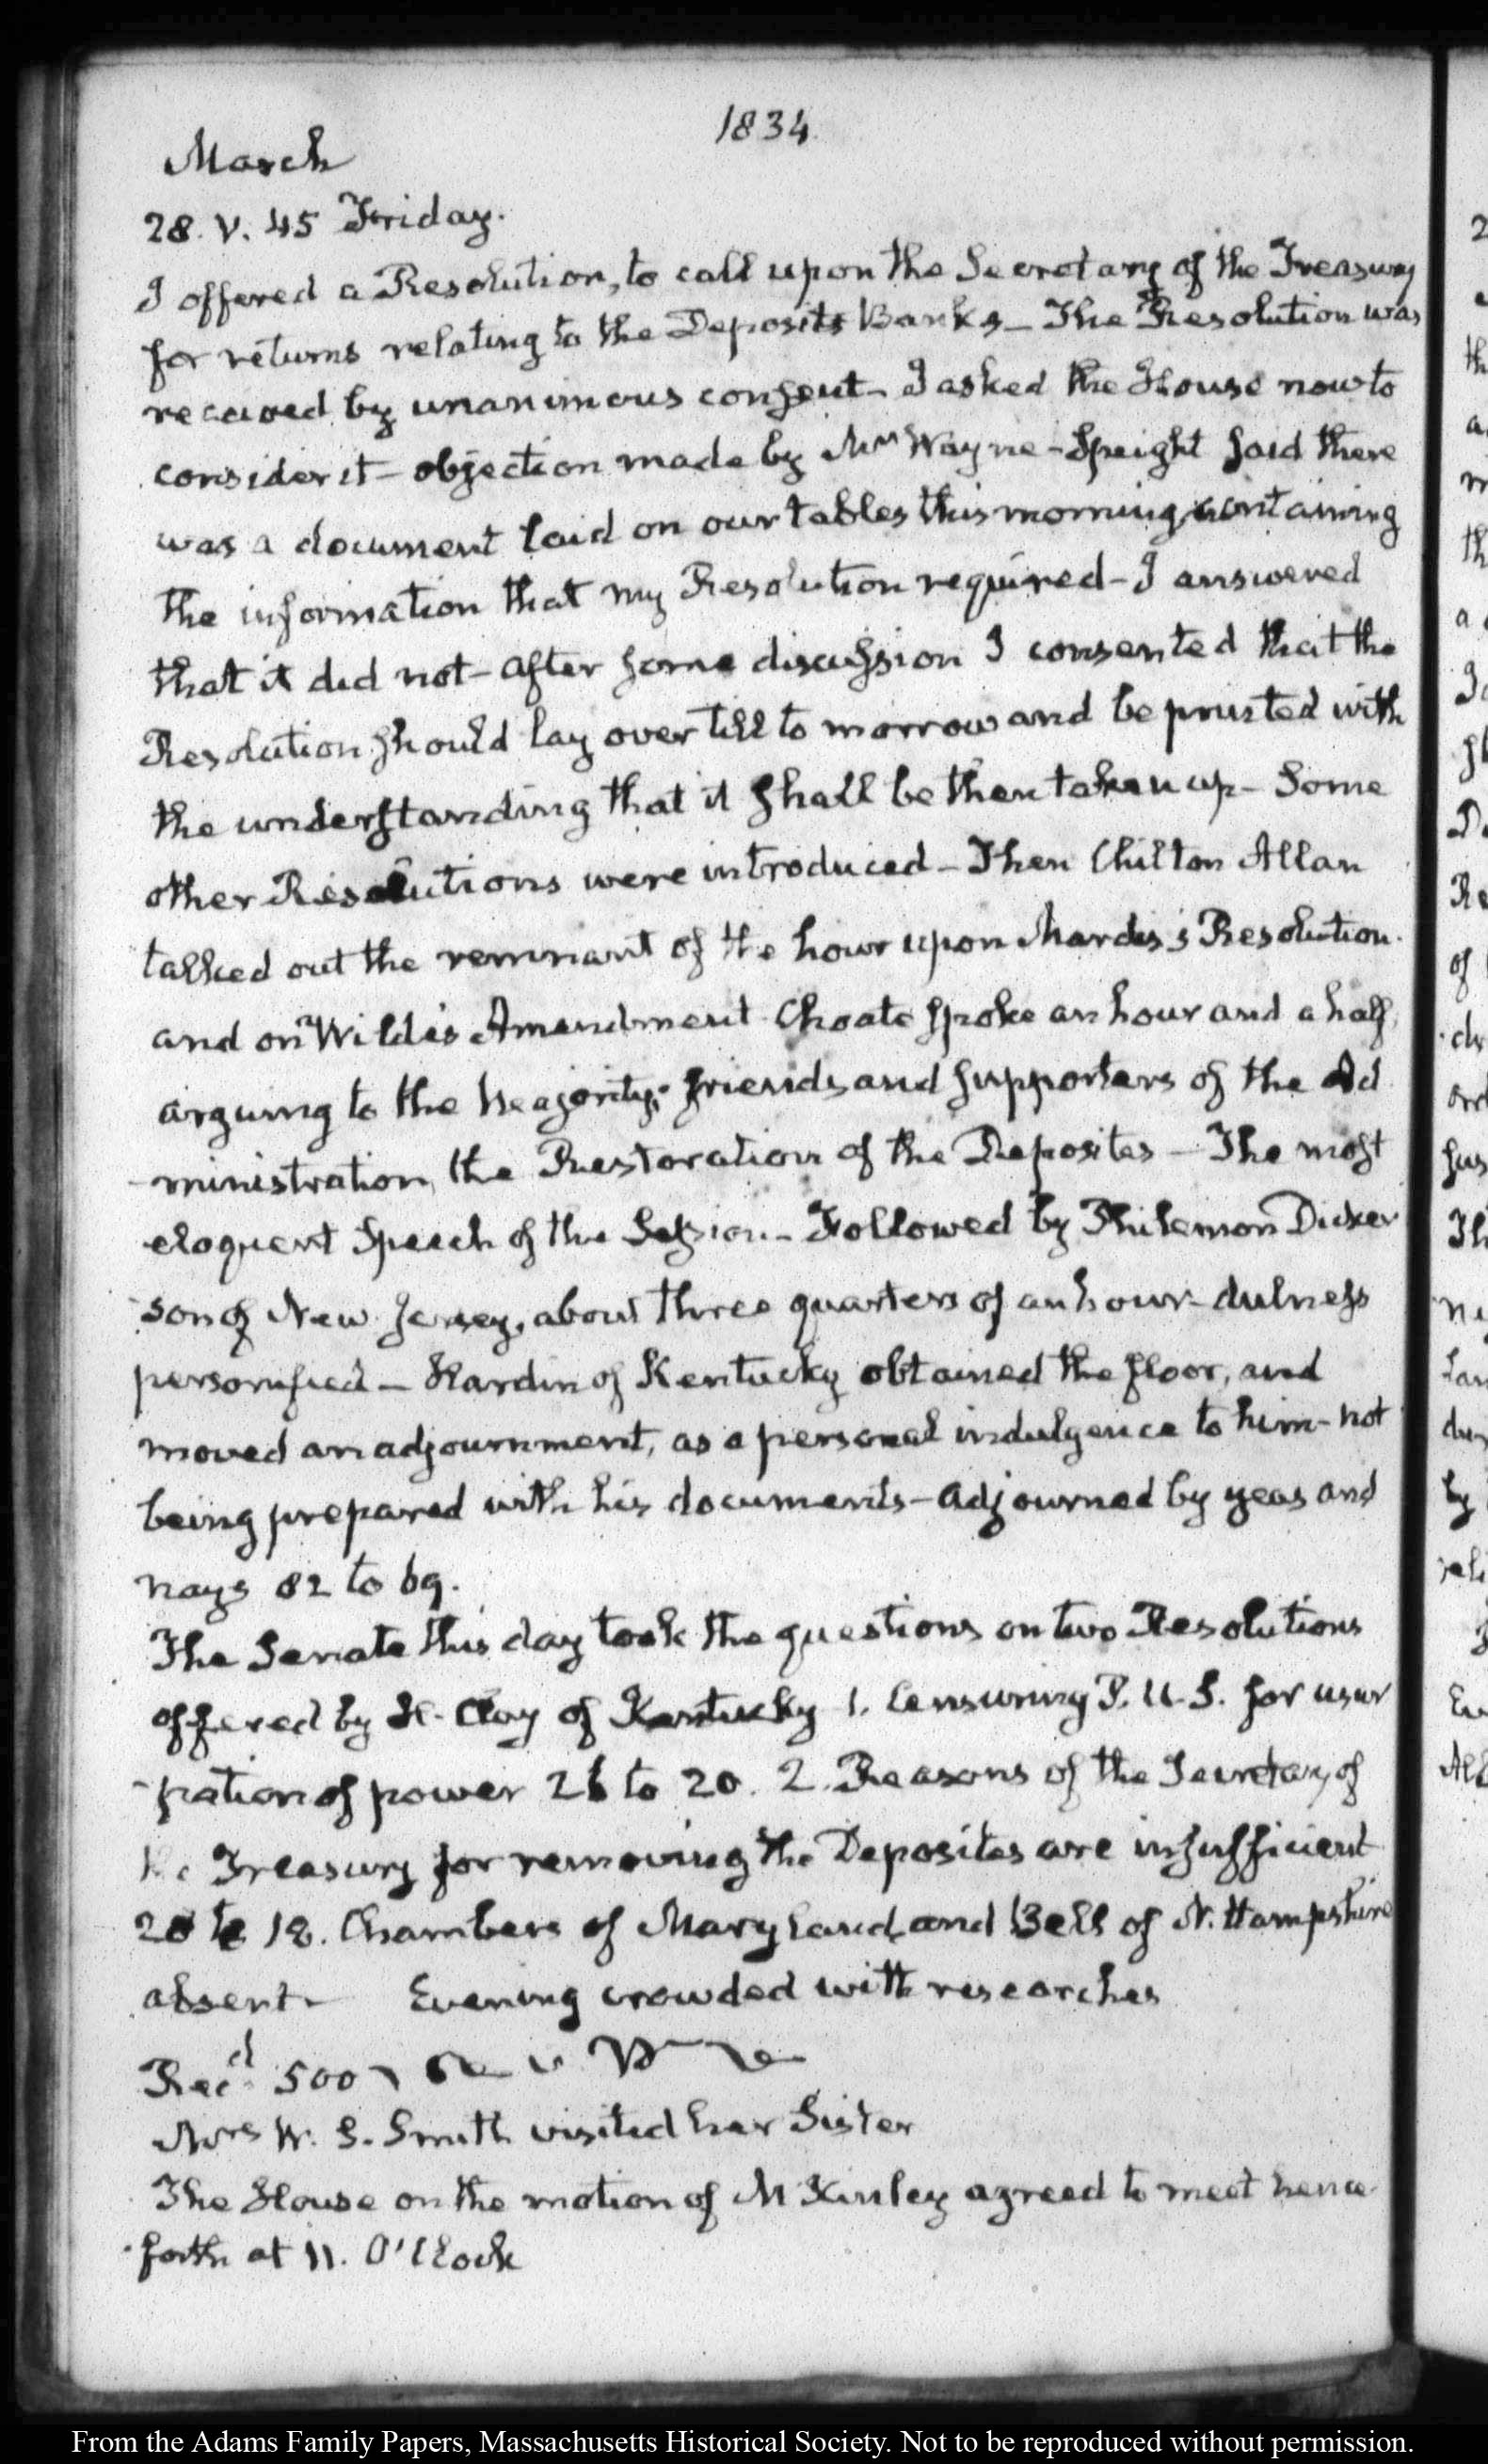 1834
March
28. V. 45 Friday.
I offered a Resolution, to call upon the Secretary of the Treasury
for returns relating to the Deposite Banks — The Resolution was
received by unanimous consent — I asked the House now to
consider it — objection made by Mr Wayne — Speight said there
was a document laid on our tables this morning, containing
the information that my Resolution required — I answered
that it did not — After some discussion I consented that the
Resolution should lay over till to morrow and be printed with
the understanding that it shall be then taken up — Some
other Resolutions were introduced — Then Chilton Allan
talked out the remnant of the hour upon Mardis's Resolution.
and on Wilde's Amendment. Choate spoke an hour and a half,
arguing to the Majority, friends and supporters of the Ad
ministration, the Restoration of the Deposites — The most
eloquent Speech of the Session — Followed by Philemon Dicker
son of New Jersey, about three quarters of an hour — dulness
personified — Hardin of Kentucky obtained the floor, and
moved an adjournment, as a personal indulgence to him — not
being prepared with his documents — Adjourned by yeas and
nays 82 to 69.
The Senate this day took the questions on two Resolutions
offered by H. Clay of Kentucky 1. Censuring P. U. S. for usur
pation of power 26 to 20. 2. Reasons of the Secretary of
the Treasury for removing the Deposites are insufficient
28 to 18. Chambers of Maryland and Bell of N. Hampshire
absent — Evening crowded with researches
Recd 500
Mrs W. S. Smith visited her Sister
The House on the motion of McKinley agreed to meet hence
forth at 11. O'Clock
From the Adams Family Papers, Massachusetts Historical Society. Not to be reproduced without permission.